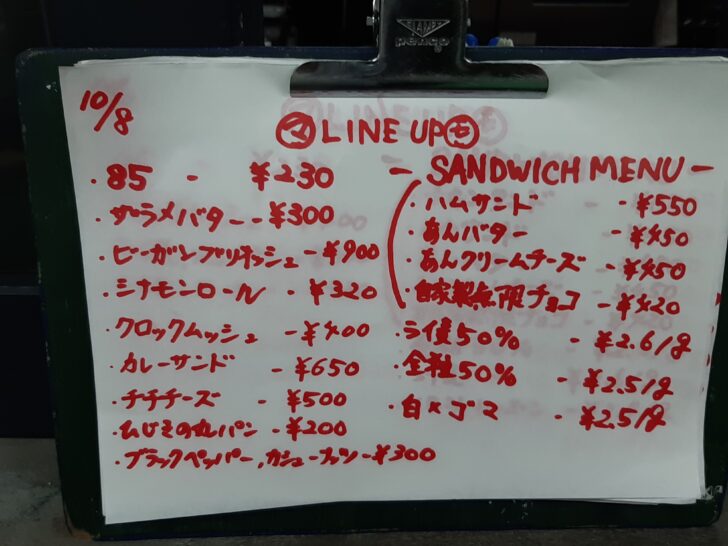 CLAMPY
penco
10/8
マ LINE UP モ
・85 - ¥230
・ザラメバター - ¥300
・ビーガンブリオッシュ - ¥900
・シナモンロール - ¥320
・クロックムッシュ - ¥400
・カレーサンド - ¥650
・チチチーズ - ¥500
丸パン - ¥200
・ブラックペッパー、カシューナッツ - ¥300
- SANDWICH MENU -
・ハムサンド - ¥550
・あんバター - ¥450
・あんクリームチーズ - ¥450
・自家製無限チョコ - ¥420
・ライ麦50% - ¥2.6/g
・全粒50% - ¥2.5/g
・白×ゴマ - ¥2.5/g